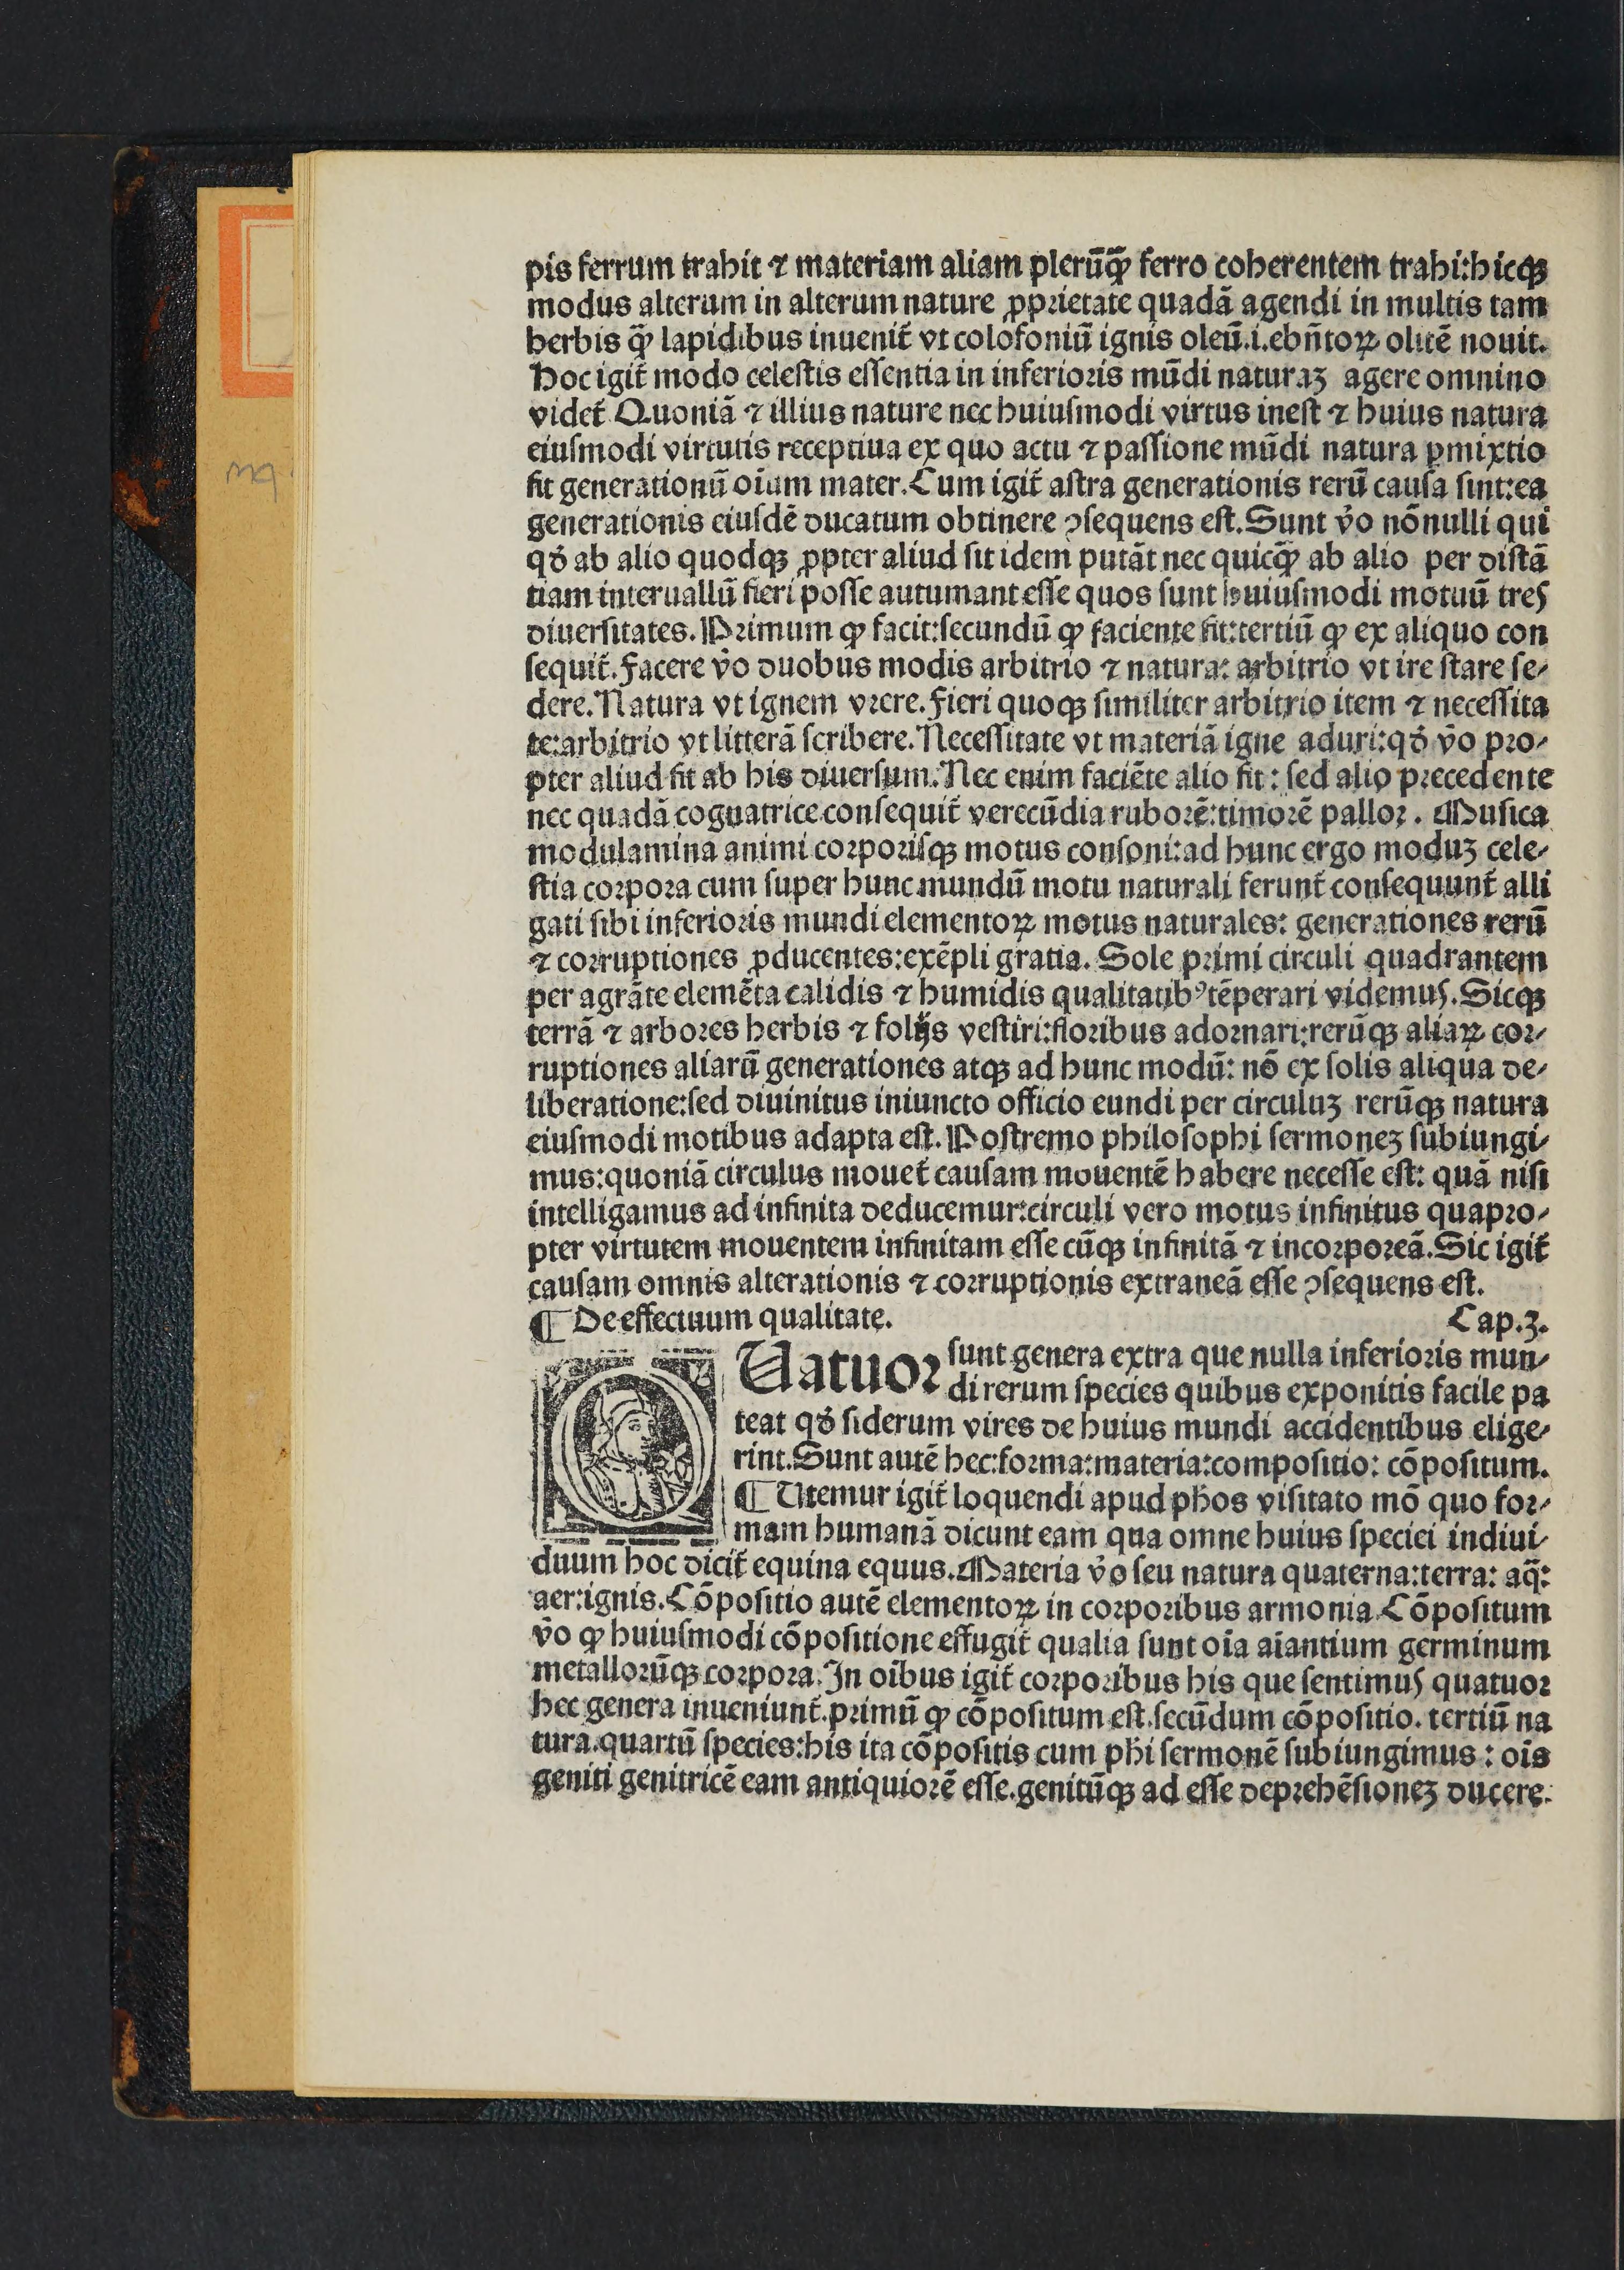 pis ferrum trahit ⁊ materiam aliam plerūqꝫ̄ ferro coherentem trahi:hicqꝫ
modus alterum in alterum nature ꝓprietate quadā agendi in multis tam
herbis qꝫ̄ lapidibus inuenit̄ vt colofoniū ignis oleū.i.ebn̄toꝝ olitē nouit.
Hoc igit̄ modo celeſtis eſſentia in inferioris mūdi naturaꝫ agere omnino
videt̄ Quoniā ⁊ illius nature nec huiuſmodi virtus ineſt ⁊ huius natura
eiuſmodi virtutis receptiua ex quo actu ⁊ paſſione mūdi natura ꝑmixtio
fit generationū oīum mater.Cum igit̄ aſtra generationis rerū cauſa ſint:ea
generationis eiuſdē ducatum obtinere ꝯſequens eſt.Sunt v̄o nōnulli qui
qd̄ ab alio quodqꝫ ꝓpter aliud ſit idem putāt nec quicqꝫ̄ ab alio per diſtā
tiam interuallū fieri poſſe autumant eſſe quos ſunt huiuſmodi motuū tres
diuerſitates.Primum ꝙ facit:ſecundū ꝙ faciente fit:tertiū ꝙ ex aliquo con
ſequit̄.Facere v̄o duobus modis arbitrio ⁊ natura: arbitrio vt ire ſtare ſe⸗
dere.Natura vt ignem vrere.Fieri quoqꝫ ſimiliter arbitrio item ⁊ neceſſita
te:arbitrio vt litterā ſcribere.Neceſſitate vt materiā igne aduri:qd̄ v̄o pro⸗
pter aliud fit ab his diuerſum.Nec enim faciēte alio fit: ſed alio precedente
nec quadā cognatrice conſequit̄ verecūdia ruborē:timorē pallor. Muſica
modulamina animi corporiſqꝫ motus conſoni:ad hunc ergo moduꝫ cele⸗
ſtia corpora cum ſuper hunc mundū motu naturali ferunt̄ conſequunt̄ alli
gati ſibi inferioris mundi elementoꝝ motus naturales: generationes rerū
⁊ corruptiones ꝓducentes:exēpli gratia. Sole primi circuli quadrantem
per agrāte elemēta calidis ⁊ humidis qualitatibꝰ tēperari videmus.Sicqꝫ
terrā ⁊ arbores herbis ⁊ folijs veſtiri:floribus adornari:rerūqꝫ aliaꝝ cor⸗
ruptiones aliarū generationes atqꝫ ad hunc modū: nō ex ſolis aliqua de⸗
liberatione:ſed diuinitus iniuncto officio eundi per circuluꝫ rerūqꝫ natura
eiuſmodi motibus adapta eſt.Poſtremo philoſophi ſermoneꝫ ſubiungi⸗
mus:quoniā circulus mouet̄ cauſam mouentē habere neceſſe eſt: quā niſi
intelligamus ad infinita deducemur:circuli vero motus infinitus quapro⸗
pter virtutem mouentem infinitam eſſe cūqꝫ infinitā ⁊ incorporeā.Sic igit̄
cauſam omnis alterationis ⁊ corruptionis extraneā eſſe ꝯſequens eſt.
¶ De effectuum qualitate. Cap.3.
QUatuor ſunt genera extra que nulla inferioris mun⸗
di rerum ſpecies quibus expoſitis facile pa
teat qd̄ ſiderum vires de huius mundi accidentibus elige⸗
rint.Sunt autē hec:forma:materia:compoſitio: cōpoſitum.
¶ Utemur igit̄ loquendi apud ph̄os viſitato mō quo for⸗
mam humanā dicunt eam qua omne huius ſpeciei indiui⸗
duum hoc dicit̄ equina equus.Materia v̄o ſeu natura quaterna:terra: aq̄:
aer:ignis.Cōpoſitio autē elementoꝝ in corporibus armonia.Cōpoſitum
v̄o ꝙ huiuſmodi cōpoſitione effugit̄ qualia ſunt oīa aīantium germinum
metallorūqꝫ corpora.In oībus igit̄ corporibus his que ſentimus quatuor
hec genera inueniunt̄.primū ꝙ cōpoſitum eſt.ſecūdum cōpoſitio. tertiū na
tura.quartū ſpecies:his ita cōpoſitis cum ph̄i ſermonē ſubiungimus: oīs
geniti genitricē eam antiquiorē eſſe.genitūqꝫ ad eſſe deprehēſioneꝫ ducere.